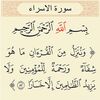 سورة الاسراء
بِسْمِ اللَّهِ الرَّحْمَٰنِ الرَّحِيمِ
وَنُنَزِّلُ مِنَ الْقُرْآنِ مَا هُوَ
شِفَاءٌ وَرَحْمَةٌ لِّلْمُؤْمِنِينَ وَلَا
يَزِيدُ الظَّالِمِينَ إِلَّا خَسَارًا